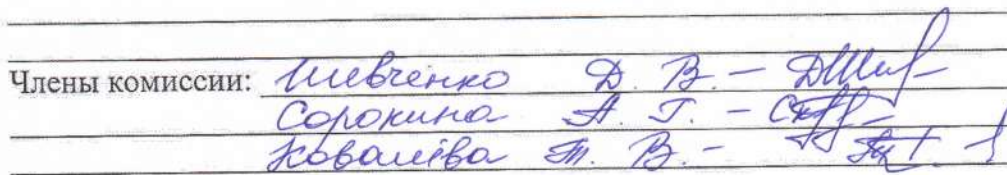 Члены комиссии: Шевченко Д. В. –
Сорокина А. Г. –
Ковалёва Т. В. –